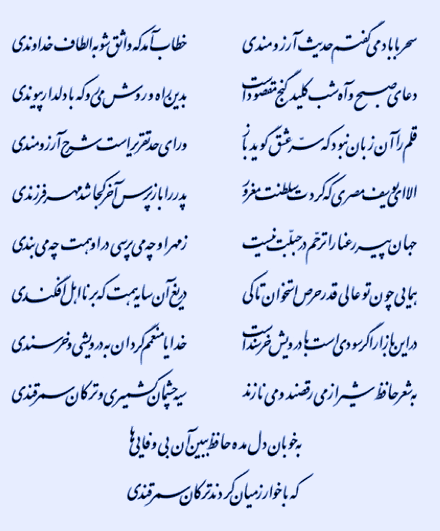 سحر با باد می‌گفتم حدیث آرزومندی خطاب آمد که واثق شو به الطاف خداوندی
دعای صبح و آه شب کلید گنج مقصود است بدین راه و روش می‌رو که با دلدار پیوندی
قلم را آن زبان نبود که سرّ عشق گوید باز ورای حد تقریر است شرح آرزومندی
الا ای یوسف مصری که کردت سلطنت مغرور پدر را بازپرس آخر کجا شد مهر فرزندی
جهان پیر رعنا را ترحّم در جبلّت نیست ز مهر او چه می‌پرسی در او همت چه می‌بندی
همایی چون تو عالی قدر حرص استخوان تا کی دریغ آن سایه همت که بر نااهل افکندی
در این بازار اگر سودی است با درویش خرسند است خدایا منعمم گردان به درویشی و خرسندی
به شعر حافظ شیراز می رقصند و می نازند سیه چشمان کشمیری و ترکان سمرقندی
به خوبان دل مده حافظ ببین آن بی وفایی‌ها
که با خوارزمیان کردند ترکان سمرقندی